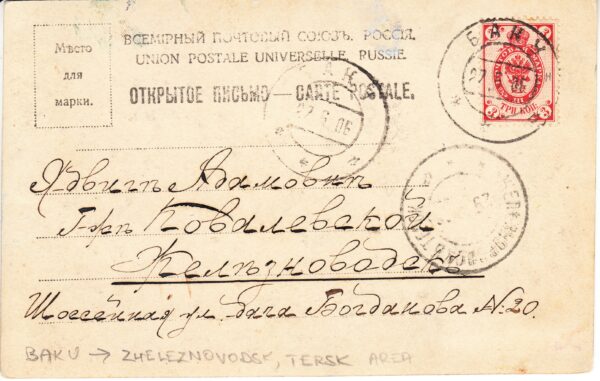 Мѣсто
для
марки.
ВСЕМІРНЫЙ ПОЧТОВЫЙ СОЮЗЪ. РОССІЯ.
UNION POSTALE UNIVERSELLE. RUSSIE.
ОТКРЫТОЕ ПИСЬМО — CARTE POSTALE.
БАКУ
27
БАКУ
27.6.06
ТРИ КОП.
3 3
Ядвигѣ Адамовнѣ
Г-жѣ Ковалевской
Желѣзноводскъ
Шоссейная ул. дача Богданова №20.
BAKU → ZHELEZNOVODSK, TERSK AREA